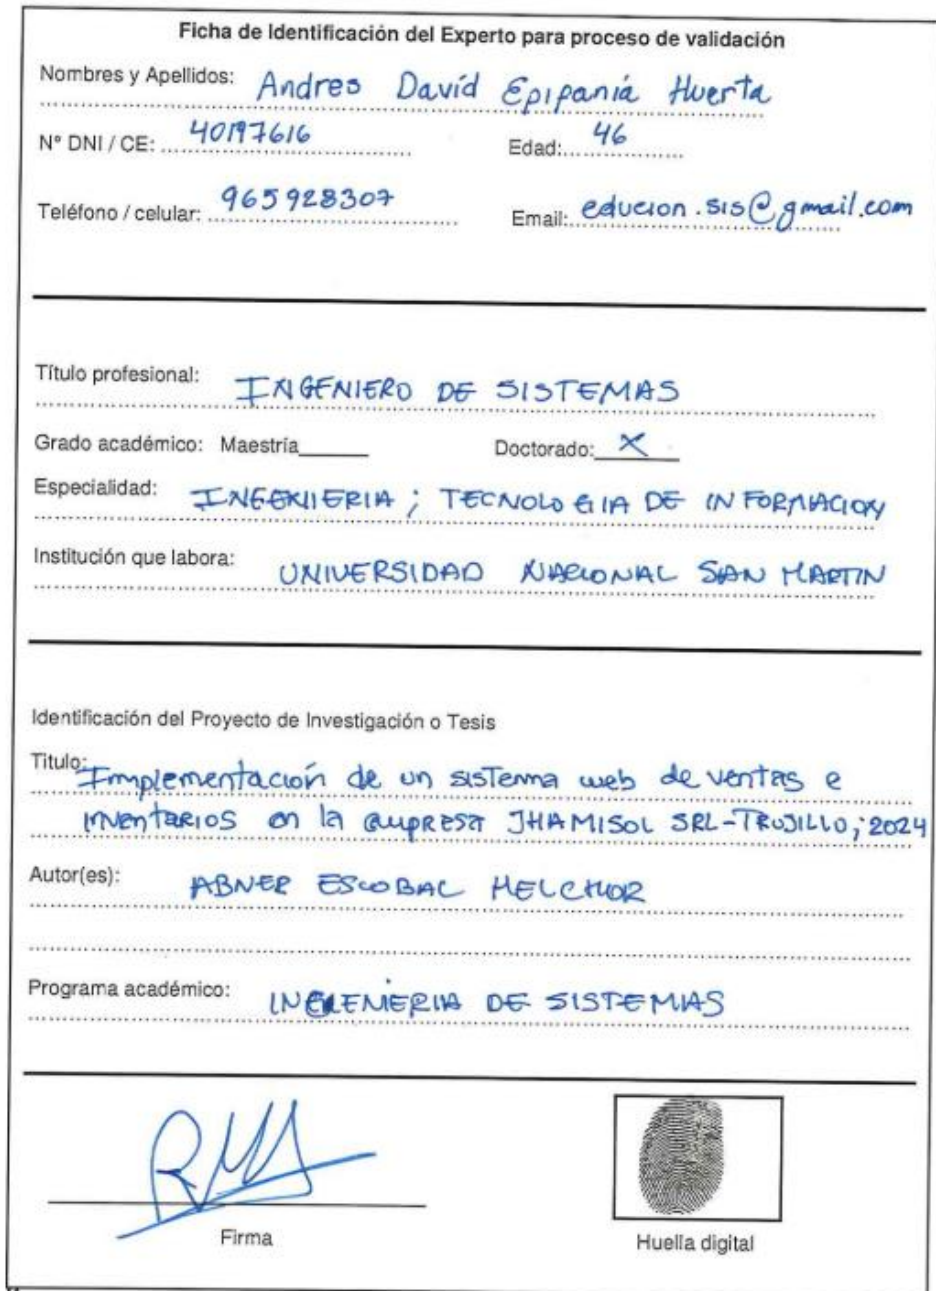 Ficha de Identificación del Experto para proceso de validación
Nombres y Apellidos: Andres David Epipania Huerta
N° DNI / CE: 40197616 Edad: 46
Teléfono / celular: 965928307 Email: educion.sis@gmail.com
Título profesional: INGENIERO DE SISTEMAS
Grado académico: Maestría Doctorado: X
Especialidad: INGENIERIA ; TECNOLOGIA DE INFORMACION
Institución que labora: UNIVERSIDAD NACIONAL SAN MARTIN
Identificación del Proyecto de Investigación o Tesis
Titulo: Implementación de un sistema web de ventas e
inventarios en la empresa JHAMISOL SRL-TRUJILLO, 2024
Autor(es): ABNER ESCOBAL MELCHOR
Programa académico: INGENIERIA DE SISTEMAS
Firma Huella digital